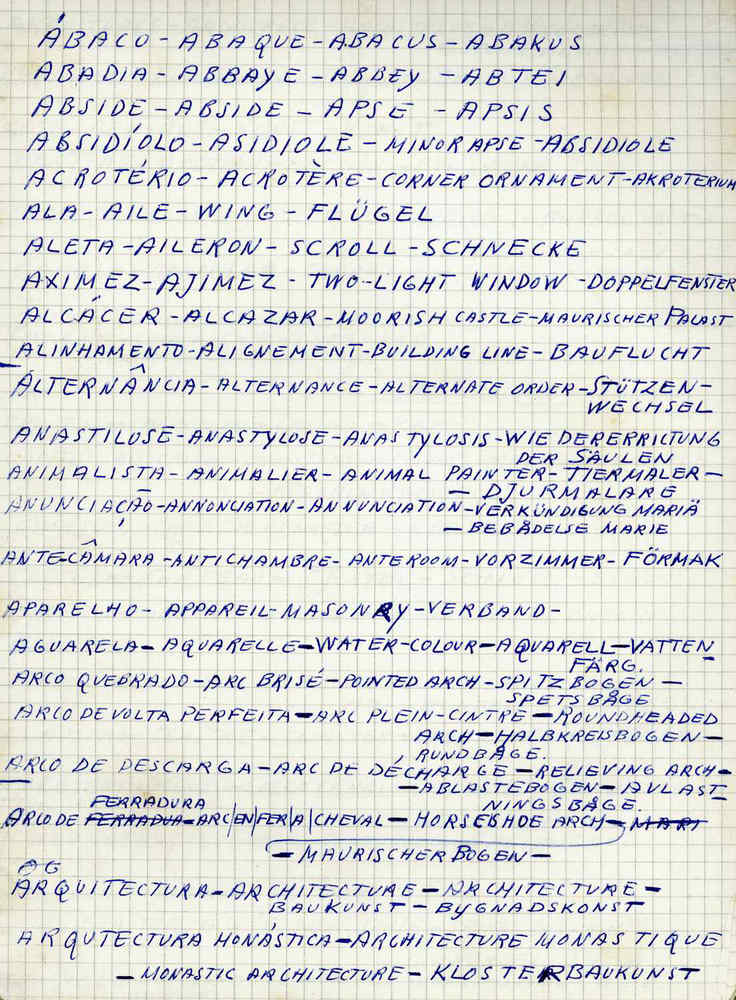 ÁBACO - ABAQUE - ABACUS - ABAKUS
ABADIA - ABBAYE - ABBEY - ABTEI
ABSIDE - ABSIDE - APSE - APSIS
ABSIDÍOLO - ASIDIOLE - MINOR APSE - ABSIDIOLE
ACROTÉRIO - ACROTÈRE - CORNER ORNAMENT - AKROTERIUM
ALA - AILE - WING - FLÜGEL
ALETA - AILERON - SCROLL - SCHNECKE
AXIMEZ - AJIMEZ - TWO-LIGHT WINDOW - DOPPELFENSTER
ALCÁCER - ALCAZAR - MOORISH CASTLE - MAURISCHER PALAST
ALINHAMENTO - ALIGNEMENT - BUILDING LINE - BAUFLUCHT
ALTERNÂNCIA - ALTERNANCE - ALTERNATE ORDER - STÜTZEN-
WECHSEL
ANASTILOSE - ANASTYLOSE - ANASTYLOSIS - WIEDERERRICTUNG
DER SÄULEN
ANIMALISTA - ANIMALIER - ANIMAL PAINTER - TIERMALER -
- DJURMALARE
ANUNCIAÇÃO - ANNONCIATION - ANNUNCIATION - VERKÜNDIGUNG MARIÄ
- BEBÅDELSE MARIE
ANTE-CÂMARA - ANTICHAMBRE - ANTEROOM - VORZIMMER - FÖRMAK
APARELHO - APPAREIL - MASONRY - VERBAND -
AGUARELA - AQUARELLE - WATER-COLOUR - AQUARELL - VATTEN
FÄRG.
ARCO QUEBRADO - ARC BRISÉ - POINTED ARCH - SPITZBOGEN -
SPETSBÅGE
ARCO DE VOLTA PERFEITA - ARC PLEIN-CINTRE - ROUNDHEADED
ARCH - HALBKREISBOGEN -
RUNDBÅGE.
ARCO DE DESCARGA - ARC DE DÉCHARGE - RELIEVING ARCH -
- ABLASTEBOGEN - AVLAST
NINGSBÅGE.
FERRADURA
ARCO DE FERRADUA - ARC|EN|FER|A|CHEVAL - HORSESHOE ARCH - MARI
- MAURISCHER BOGEN -
ARQUITECTURA - ARCHITECTURE - ARCHITECTURE -
BAUKUNST - BYGNADSKONST
ARQUTECTURA MONÁSTICA - ARCHITECTURE MONASTIQUE
- MONASTIC ARCHITECTURE - KLOSTERBAUKUNST